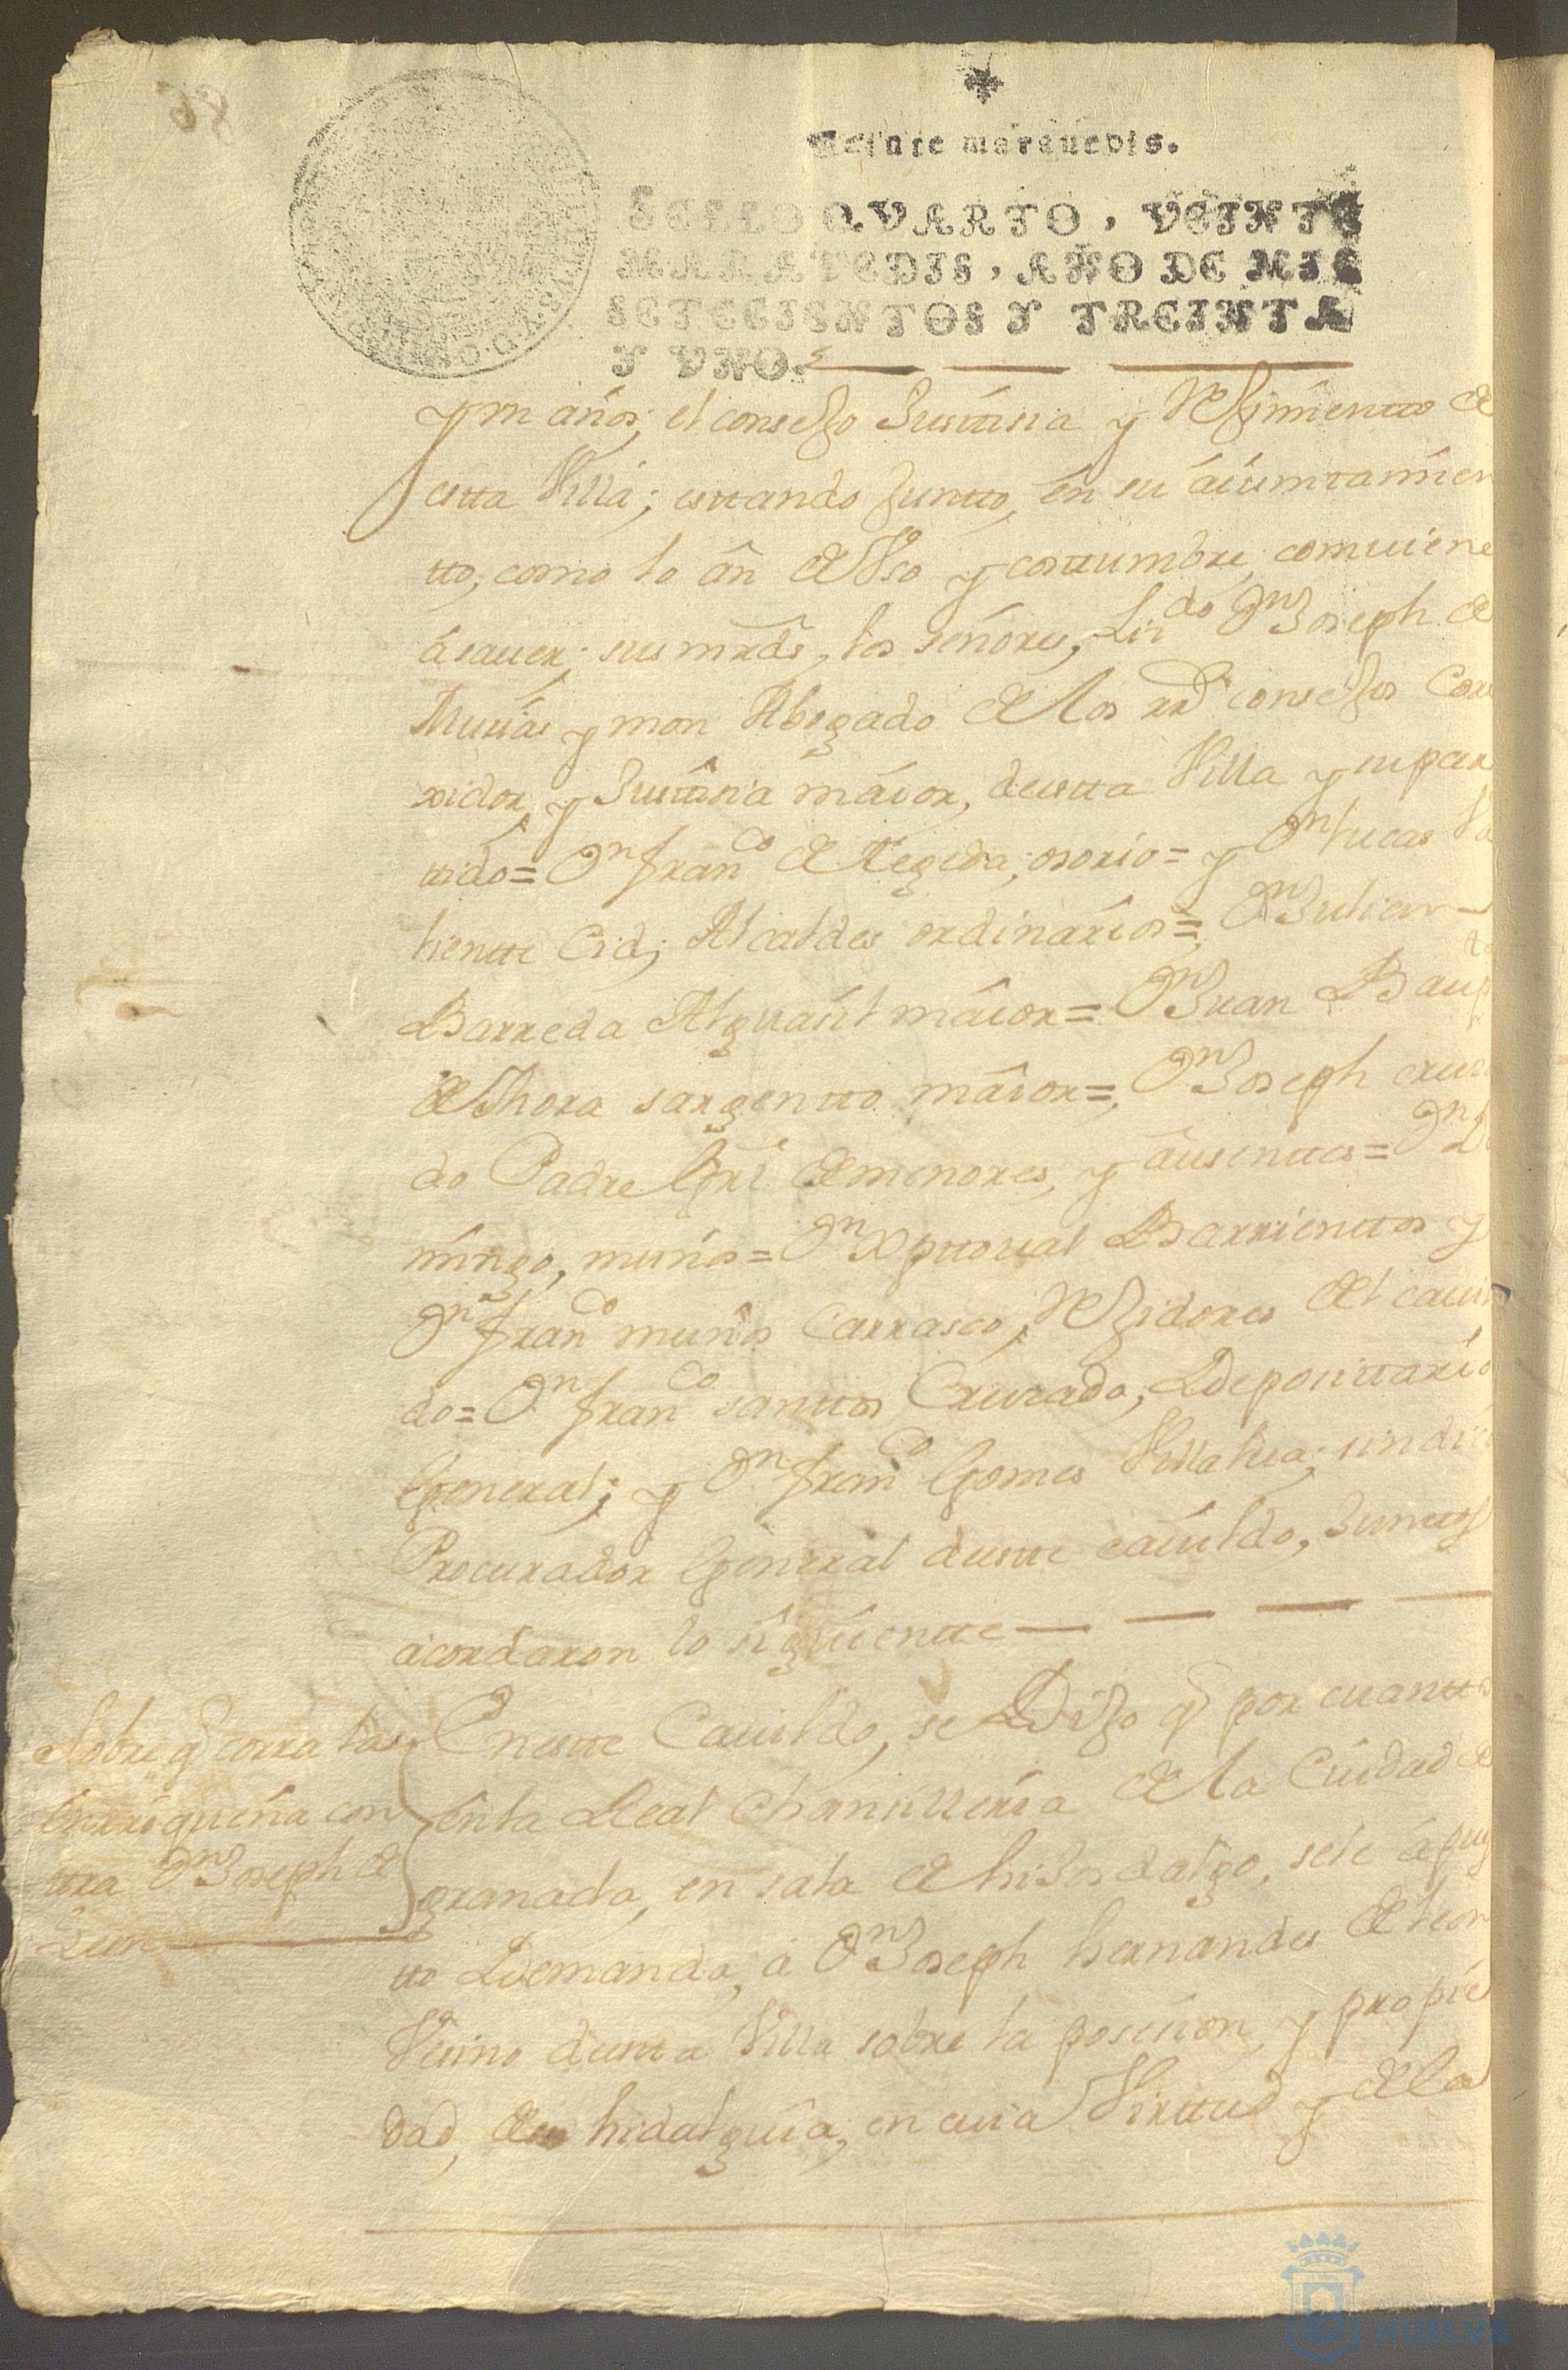 86
Veinte maravedis.
SELLO QVARTO, VEINTE
MARAVEDIS, AÑO DE MIL
SETECIENTOS Y TREINTA
Y VNO.
y un años, el consejo Justtisia y Rejimientto de
estta Villa; esttando juntto, en su aiuntamien
tto, como lo an de Uso y costtumbre, combiene
á sauer; sus mrds, los señores, Lizdo Dn Joseph de
Murias y mon Abogado de los rrs consejos Corre
xidor, y Justtisia maior, de estta Villa y su par
ttido= Dn Franco de Osorio= y Dn Lucas Va
liente Cid; Alcaldes ordinarios= Dn Julian
Barreda Alguasil maior= Dn Juan Baupta
de Thora sargentto maior= Dn Joseph crusa
do Padre Gral de menores, y ausenttes= Dn Do
mingo, muños= Dn Xpttoual Barrienttos y
Dn Franco muños Carrasco, Rejidores del cauil
do= Dn Franco santtos Crusado, Deposittario
General; y Dn Franco Gomes Villalua; sindico
Procurador General de estte cauildo, Junttos
acordaron lo siguientte
Sobre q corra la
enrriqueña con
ttra Dn Joseph de
Leon
En estte Cauildo, se Dijo q por cuantto
en la Real Chansilleria de la Ciudad de
granada, en sala de hijos dalgo, se le á pues
tto Demanda, a Dn Joseph hernandes de leon
Vesino de estta Villa sobre la posesion, y propie
dad, de su hidalguia, en cuia Virttud y de la
HUELVA